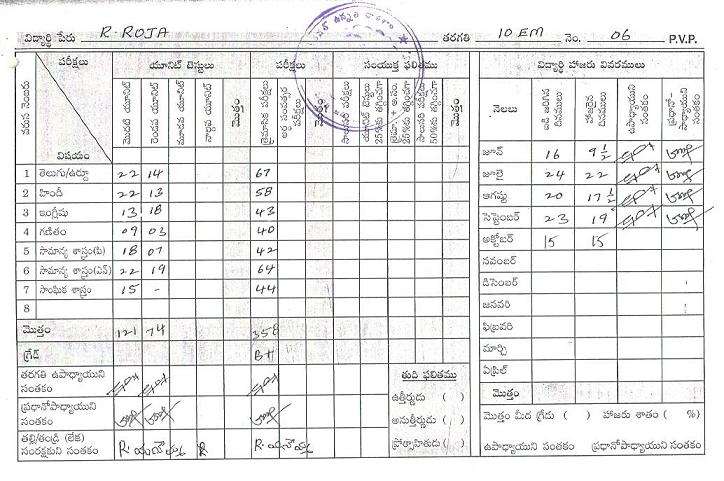 విద్యార్థి పేరు R. ROJA తరగతి 10 EM నెం. 06 P.V.P.
వరుస నెంబరు పరీక్షలు విషయం యూనిట్ టెస్టులు పరీక్షలు సంయుక్త ఫలితము
మొదటి యూనిట్ రెండవ యూనిట్ మూడవ యూనిట్ నాల్గవ యూనిట్ మొత్తం త్రైమాసిక పరీక్షలు అర్థ సంవత్సర పరీక్షలు మొత్తం
మొత్తం
1 తెలుగు/ఉర్దూ 22 14 67
2 హిందీ 22 13 58
3 ఇంగ్లీషు 13 18 43
4 గణితం 09 03 40
5 సామాన్య శాస్త్రం(పి) 18 07 42
6 సామాన్య శాస్త్రం(ఎన్) 22 19 64
7 సాంఘిక శాస్త్రం 15 - 44
8
మొత్తం 121 74 358
గ్రేడ్ B+
తరగతి ఉపాధ్యాయుని సంతకం
ప్రధానోపాధ్యాయుని సంతకం
తల్లి/తండ్రి (లేక) సంరక్షకుని సంతకం
తుది ఫలితము
ఉత్తీర్ణుడు ( )
అనుత్తీర్ణుడు ( )
ప్రోత్సాహితుడు ( )
విద్యార్థి హాజరు వివరములు
నెలలు బడి జరిగిన దినములు హాజరైన దినములు ఉపాధ్యాయుని సంతకం ప్రధానో-పాధ్యాయుని సంతకం
జూన్ 16 9 1/2
జూలై 24 22
ఆగష్టు 20 17 1/2
సెప్టెంబర్ 23 19
అక్టోబర్ 15 15
నవంబర్
డిసెంబర్
జనవరి
ఫిబ్రవరి
మార్చి
ఏప్రిల్
మొత్తం
మొత్తము మీద గ్రేడు ( ) హాజరు శాతం ( %)
ఉపాధ్యాయుని సంతకం ప్రధానోపాధ్యాయుని సంతకం